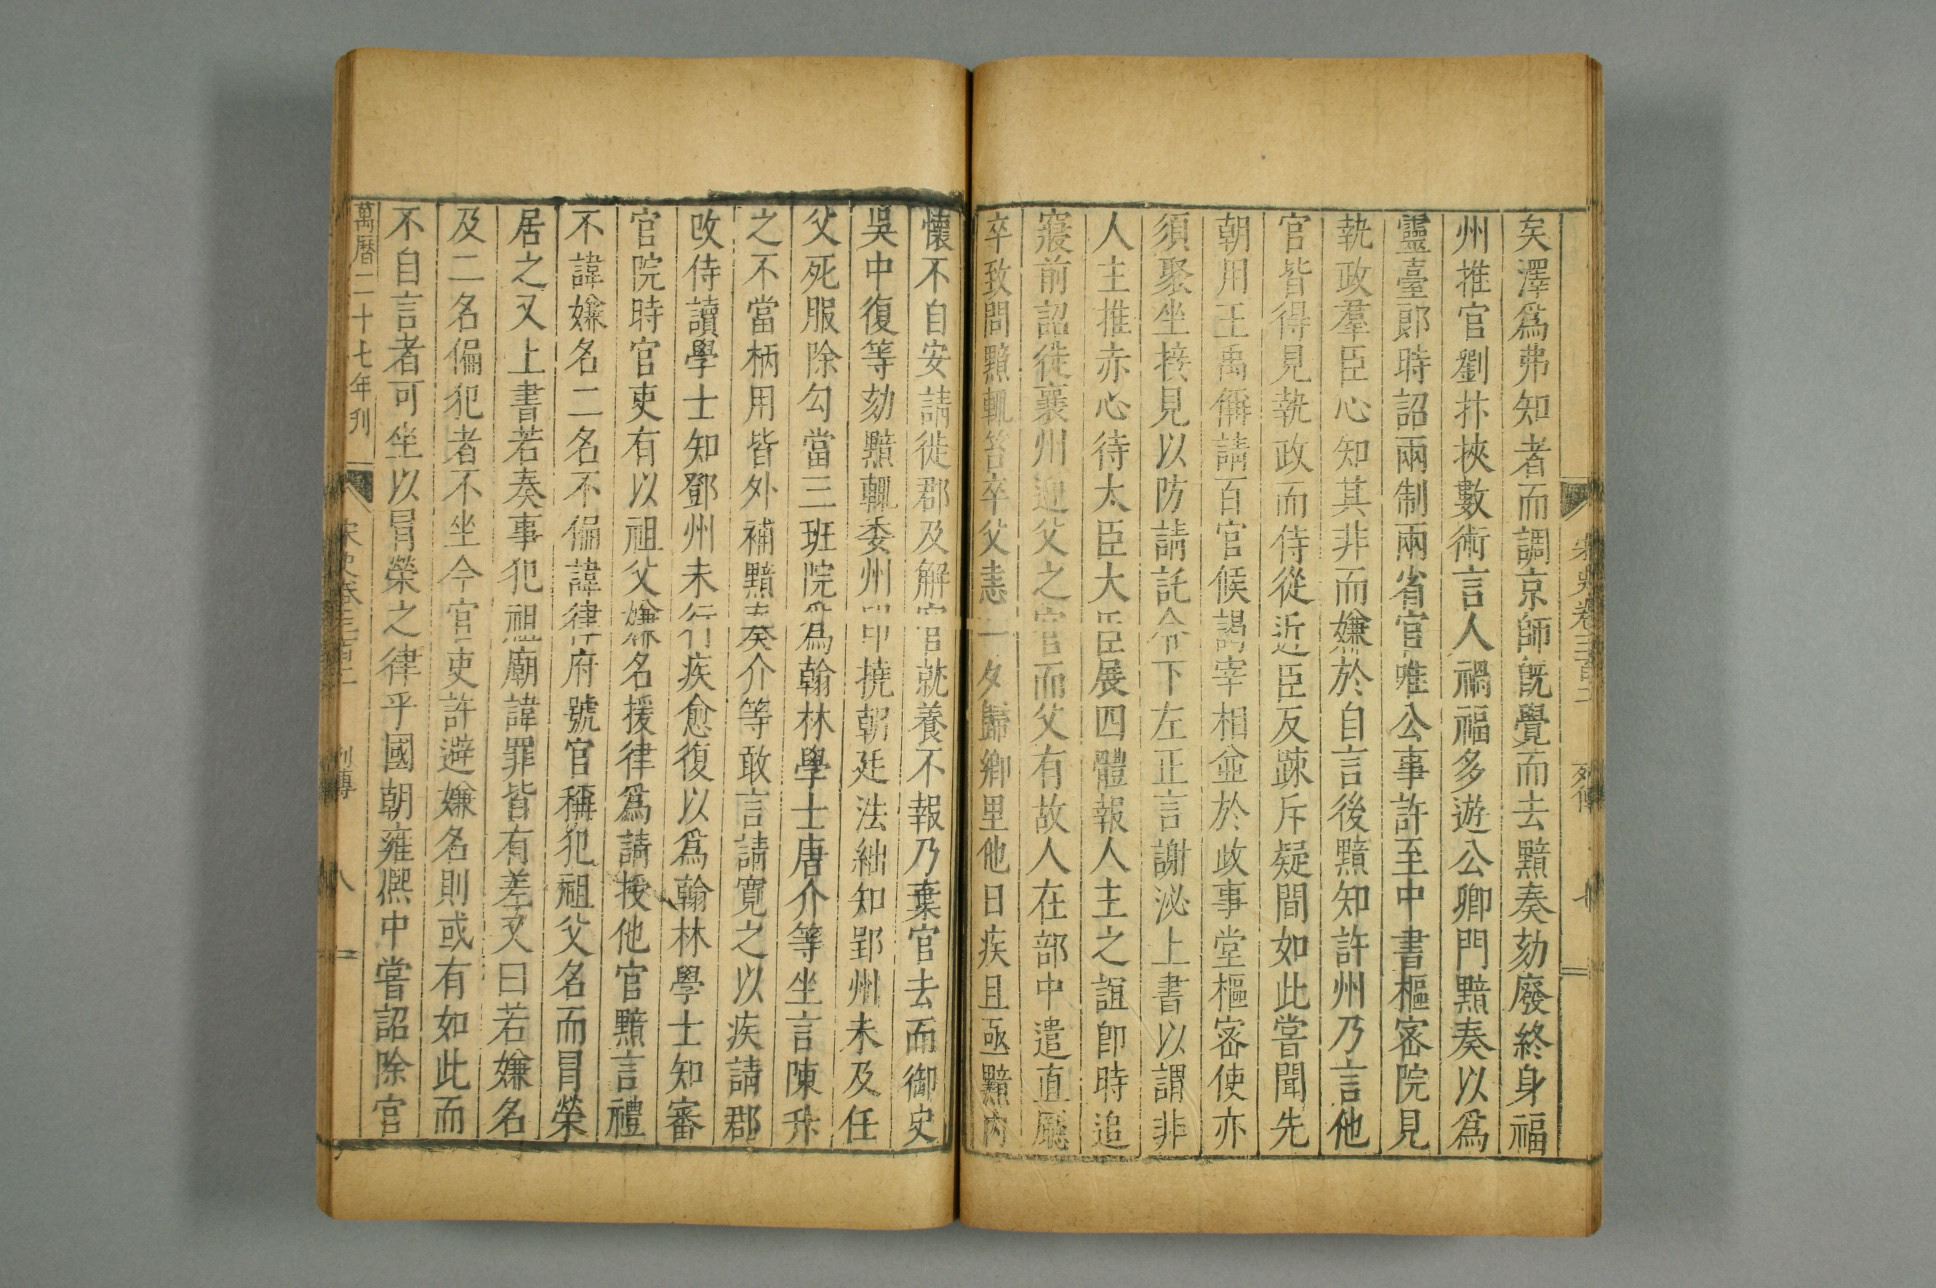 宋史卷三百二 列傳 七
矣澤爲弗知者而調京師旣覺而去黯奏劾廢終身福
州推官劉抃挾數術言人禍福多遊公卿門黯奏以爲
靈臺郎時詔兩制兩省官唯公事許至中書樞密院見
執政羣臣心知其非而嫌於自言後黯知許州乃言他
官皆得見執政而侍從近臣反踈斥疑間如此嘗聞先
朝用王禹偁請百官候謁宰相並於政事堂樞密使亦
須聚坐接見以防請託令下左正言謝泌上書以謂非
人主推赤心待大臣大臣展四體報人主之誼卽時追
寢前詔徙襄州迎父之官而父有故人在部中遣直廳
卒致問黯輒笞卒父恚一夕歸鄉里他日疾且亟黯內
懷不自安請徙郡及解官就養不報乃棄官去而御史
吳中復等劾黯輒委州印撓朝廷法絀知郢州未及任
父死服除勾當三班院爲翰林學士唐介等坐言陳升
之不當柄用皆外補黯奏介等敢言請寬之以疾請郡
改侍讀學士知鄧州未行疾愈復以爲翰林學士知審
官院時官吏有以祖父嫌名援律爲請授他官黯言禮
不諱嫌名二名不偏諱律府號官稱犯祖父名而冒榮
居之又上書若奏事犯祖廟諱罪皆有差又曰若嫌名
及二名偏犯者不坐今官吏許避嫌名則或有如此而
不自言者可坐以冒榮之律乎國朝雍熈中嘗詔除官
萬曆二十七年刊 宋史卷三百二 列傳 八